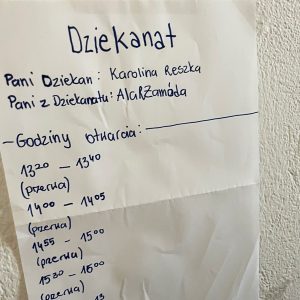 Dziekanat
Pani Dziekan: Karolina Reszka
Pani z Dziekanatu: Ala Rzamóda
- Godziny otwarcia:
13²⁰ - 13⁴⁰
(przerwa)
14⁰⁰ - 14⁰⁵
(przerwa)
14⁵⁵ - 15⁰⁰
(przerwa)
15³⁰ - 16⁰⁰
(przerwa)